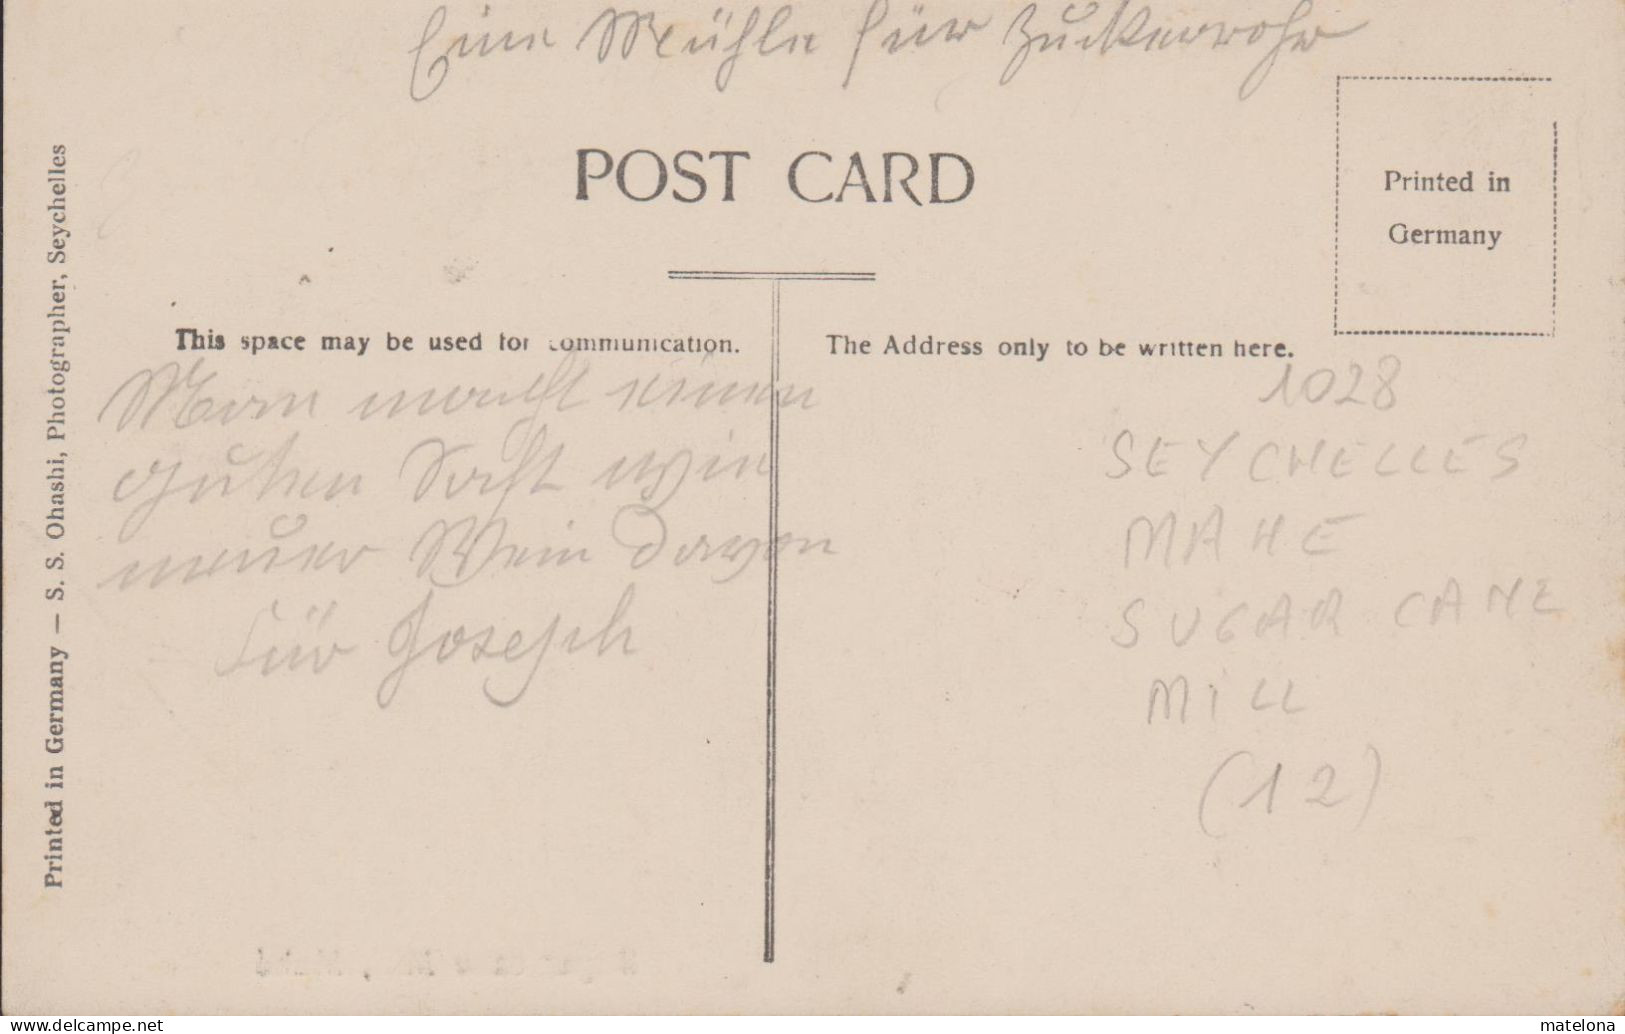 Eine Mühle für Zuckerrohr
POST CARD
Printed in
Germany
Printed in Germany — S. S. Ohashi, Photographer, Seychelles
This space may be used for communication.
Man macht einen
guten Saft wie
neuer Wein davon
für Joseph
The Address only to be written here.
1028
SEYCHELLES
MAHE
SUGAR CANE
MILL
(12)
www.delcampe.net
matelona